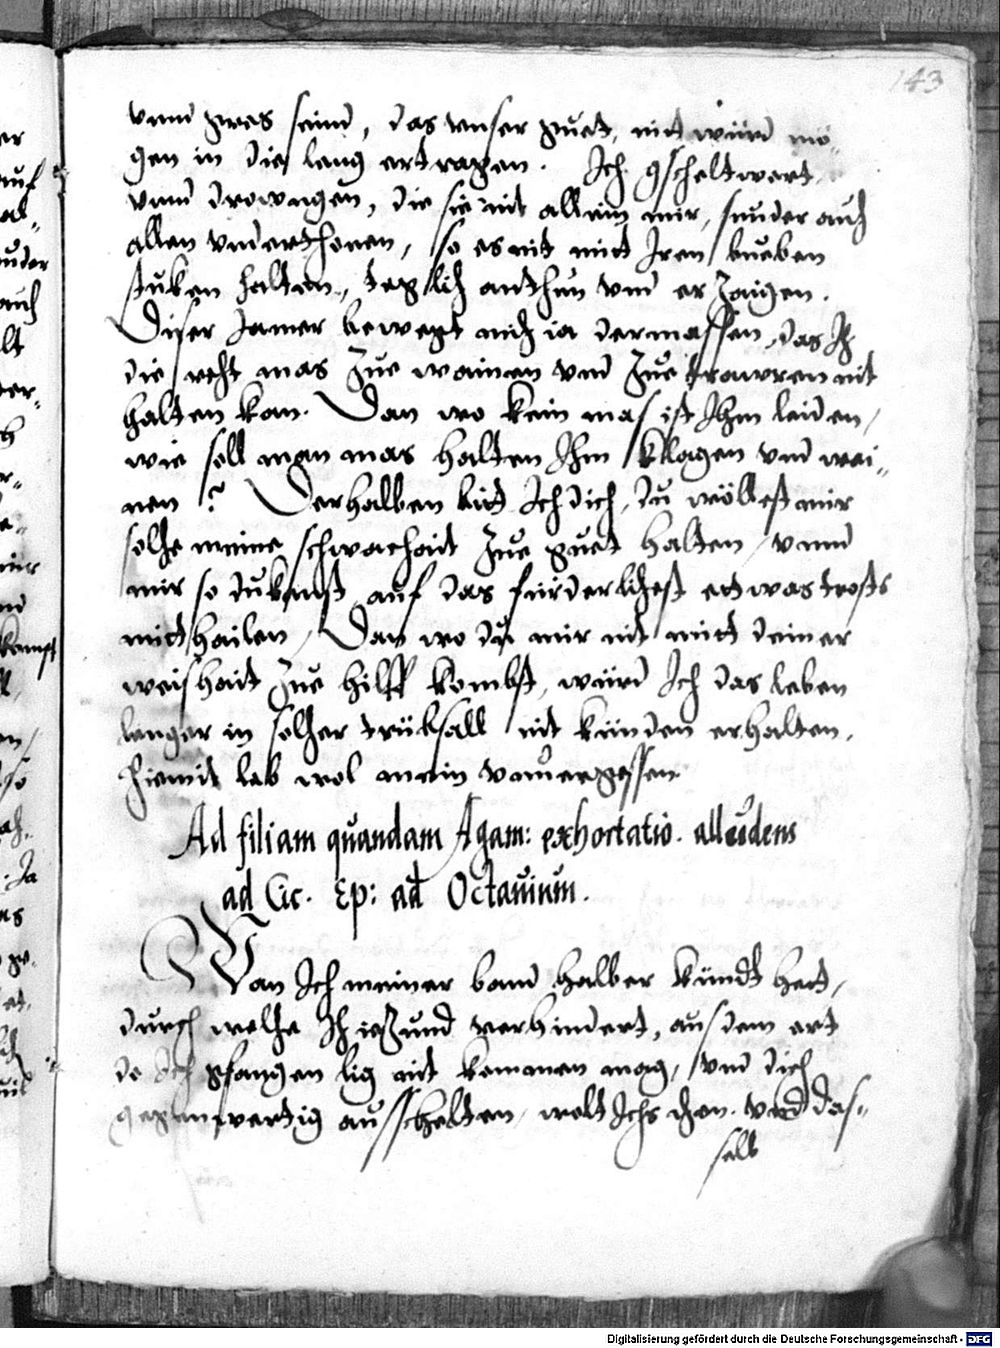 143
vnnd zwes seind, das vnser guet, nit würd mö-
gen in die leng ertragen. Ich gscheltwert
vnnd drowngen, die sie nit allein mir, sunder auch
allen vnderthonen, so es nit mitt Iren bueben
stuken halten, teglich anthun vnd erzaigen.
Diser Jamer bewegt mich ia dermassen, das Ich
die recht mas zue wainen vnd zue trawren nit
halten kan. Dan wo kein mas ist Ihm leiden,
wie soll man mas halten Ihm klagen vnd wai-
nen? Derhalben bitt Ich dich, du wöllest mir
solche meine schwachait zue guet halten, vnnd
mir so du kanst auf das fürderlichest ettwas trosts
mitthailen, Dan wo du mir nit mitt deiner
weishait zue hilff kombst, würd Ich das leben
lenger in solcher trüksall nit künden erhalten.
Hiemit leb wol mein vnuergessen.
Ad filiam quandam Agam: exhortatio. alludens
ad Cic. Ep: ad Octauium.
Wan Ich meiner band halber kündt hett,
durch welche Ich iezund verhindert, aus dem ort
do Ich gfangen lig nit kommen mag, vnd dich
gegenwertig ausschelten, wolt Ichs thon. vnd das-
selb
er
auf
al-
uder
auch
lt
er-
kempt
so
Ja
Digitalisierung gefördert durch die Deutsche Forschungsgemeinschaft - DFG